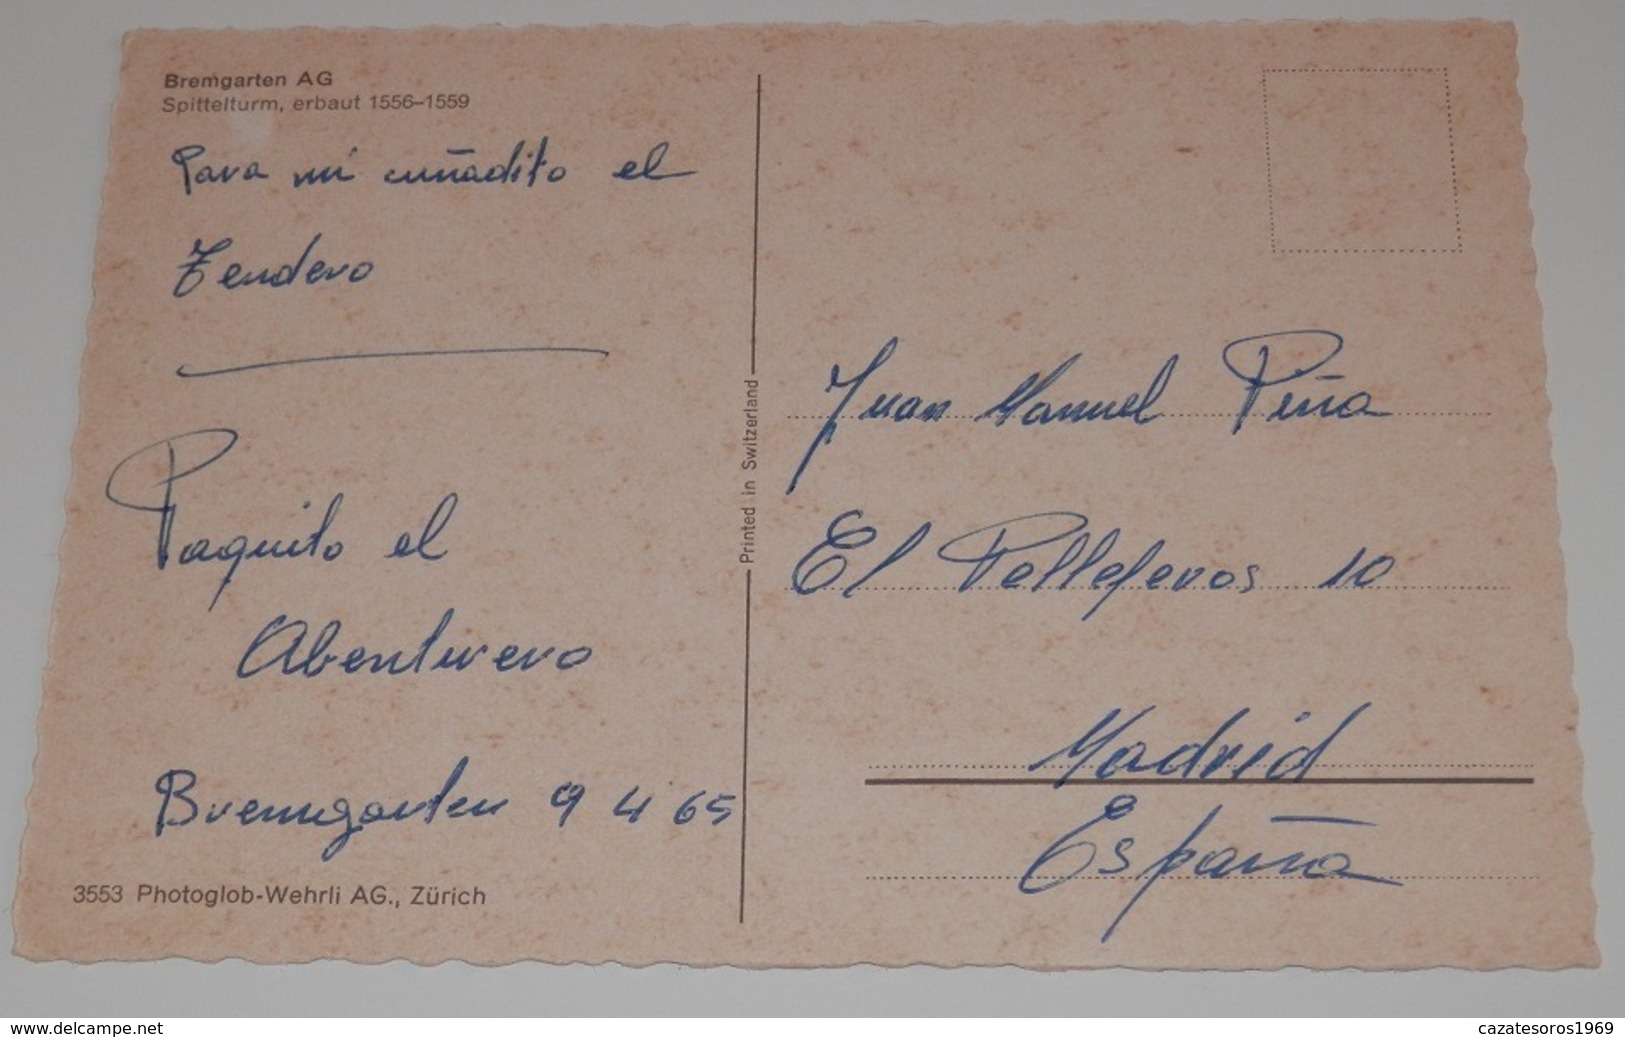 Bremgarten AG
Spittelturm, erbaut 1556–1559
Para mi cuñadito el
Tendero
Paquito el
Abenturero
Bremgarten 9 4 65
3553 Photoglob-Wehrli AG., Zürich
Printed in Switzerland
Juan Manuel Peña
El Pellejeros 10
Madrid
España
www.delcampe.net
cazatesoros1969